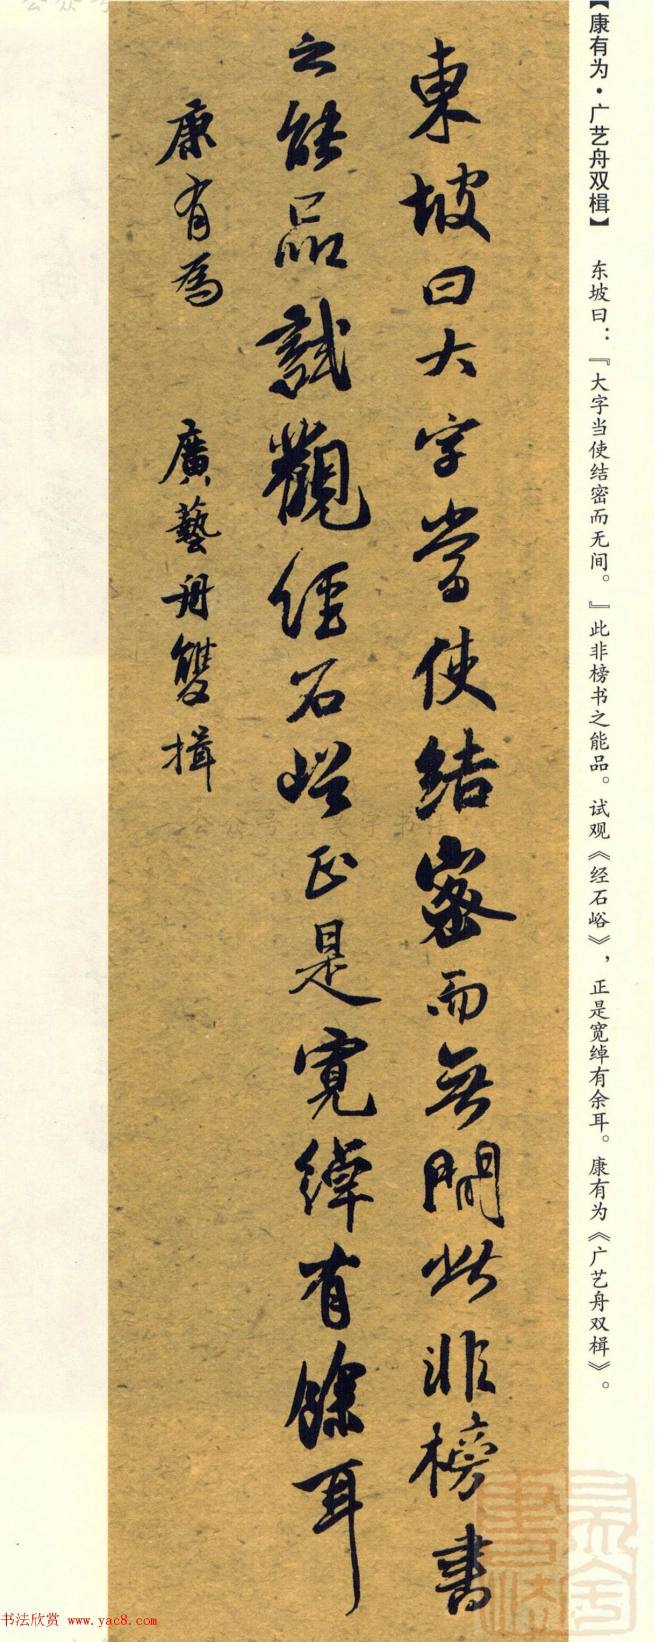 【康有为·广艺舟双楫】 东坡曰：『大字当使结密而无间。』此非榜书之能品。试观《经石峪》，正是宽绰有余耳。康有为《广艺舟双楫》。
東坡曰大字當使結密而無間此非榜書
之能品試觀經石峪正是寬綽有餘耳
康有為 廣藝舟雙揖
书法欣赏 www.yac8.com